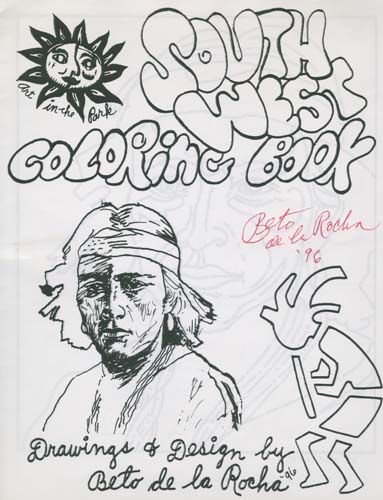 Art
in-the
Park
SOUTH
WEST
COLORING BOOK
Beto
de la Rocha
'96
Drawings & Design by
Beto de la Rocha '96